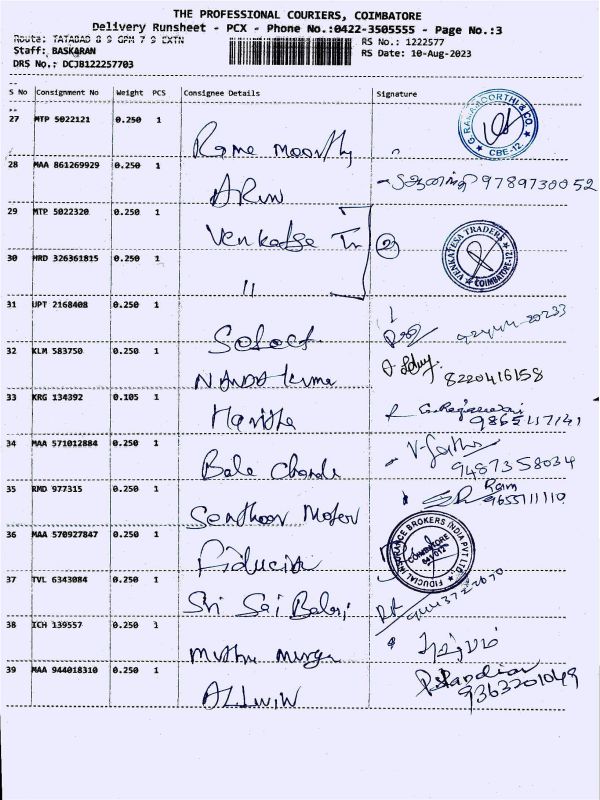 THE PROFESSIONAL COURIERS, COIMBATORE
Delivery Runsheet - PCX - Phone No.:0422-3505555 - Page No.:3
Route: TATABAD 8 9 GPM 7 9 EXTN
RS No.: 1222577
Staff: BASKARAN
RS Date: 10-Aug-2023
DRS No.: DCJB122257703
S No Consignment No Weight PCS Consignee Details Signature
27 MTP 5022121 0.250 1 Rama Moorthy
G. RAMAMOORTHI & CO. CBE-12
28 MAA 861269929 0.250 1 ARUN 9789730052
29 MTP 5022320 0.250 1 Venkatse Tr 2
30 HRD 326361815 0.250 1 "
VENKATESA TRADERS COIMBATORE-12
31 UPT 2168408 0.250 1 Select
32 KLM 583750 0.250 1 Nanda Kuma 8220416158
33 KRG 134392 0.105 1 Harisha
34 MAA 571012884 0.250 1 Bala Chande 9487358034
35 RMD 977315 0.250 1 Senthoor Moter Ram 9655711110
36 MAA 570927847 0.250 1 Fiducia
FIDUCIAL INSURANCE BROKERS INDIA PVT. LTD. COIMBATORE 641012
37 TVL 6343084 0.250 1 Sri Sai Balaji
38 ICH 139557 0.250 1 Muthu Muruga
39 MAA 944018310 0.250 1 ALLWIN Pandian 9363201049